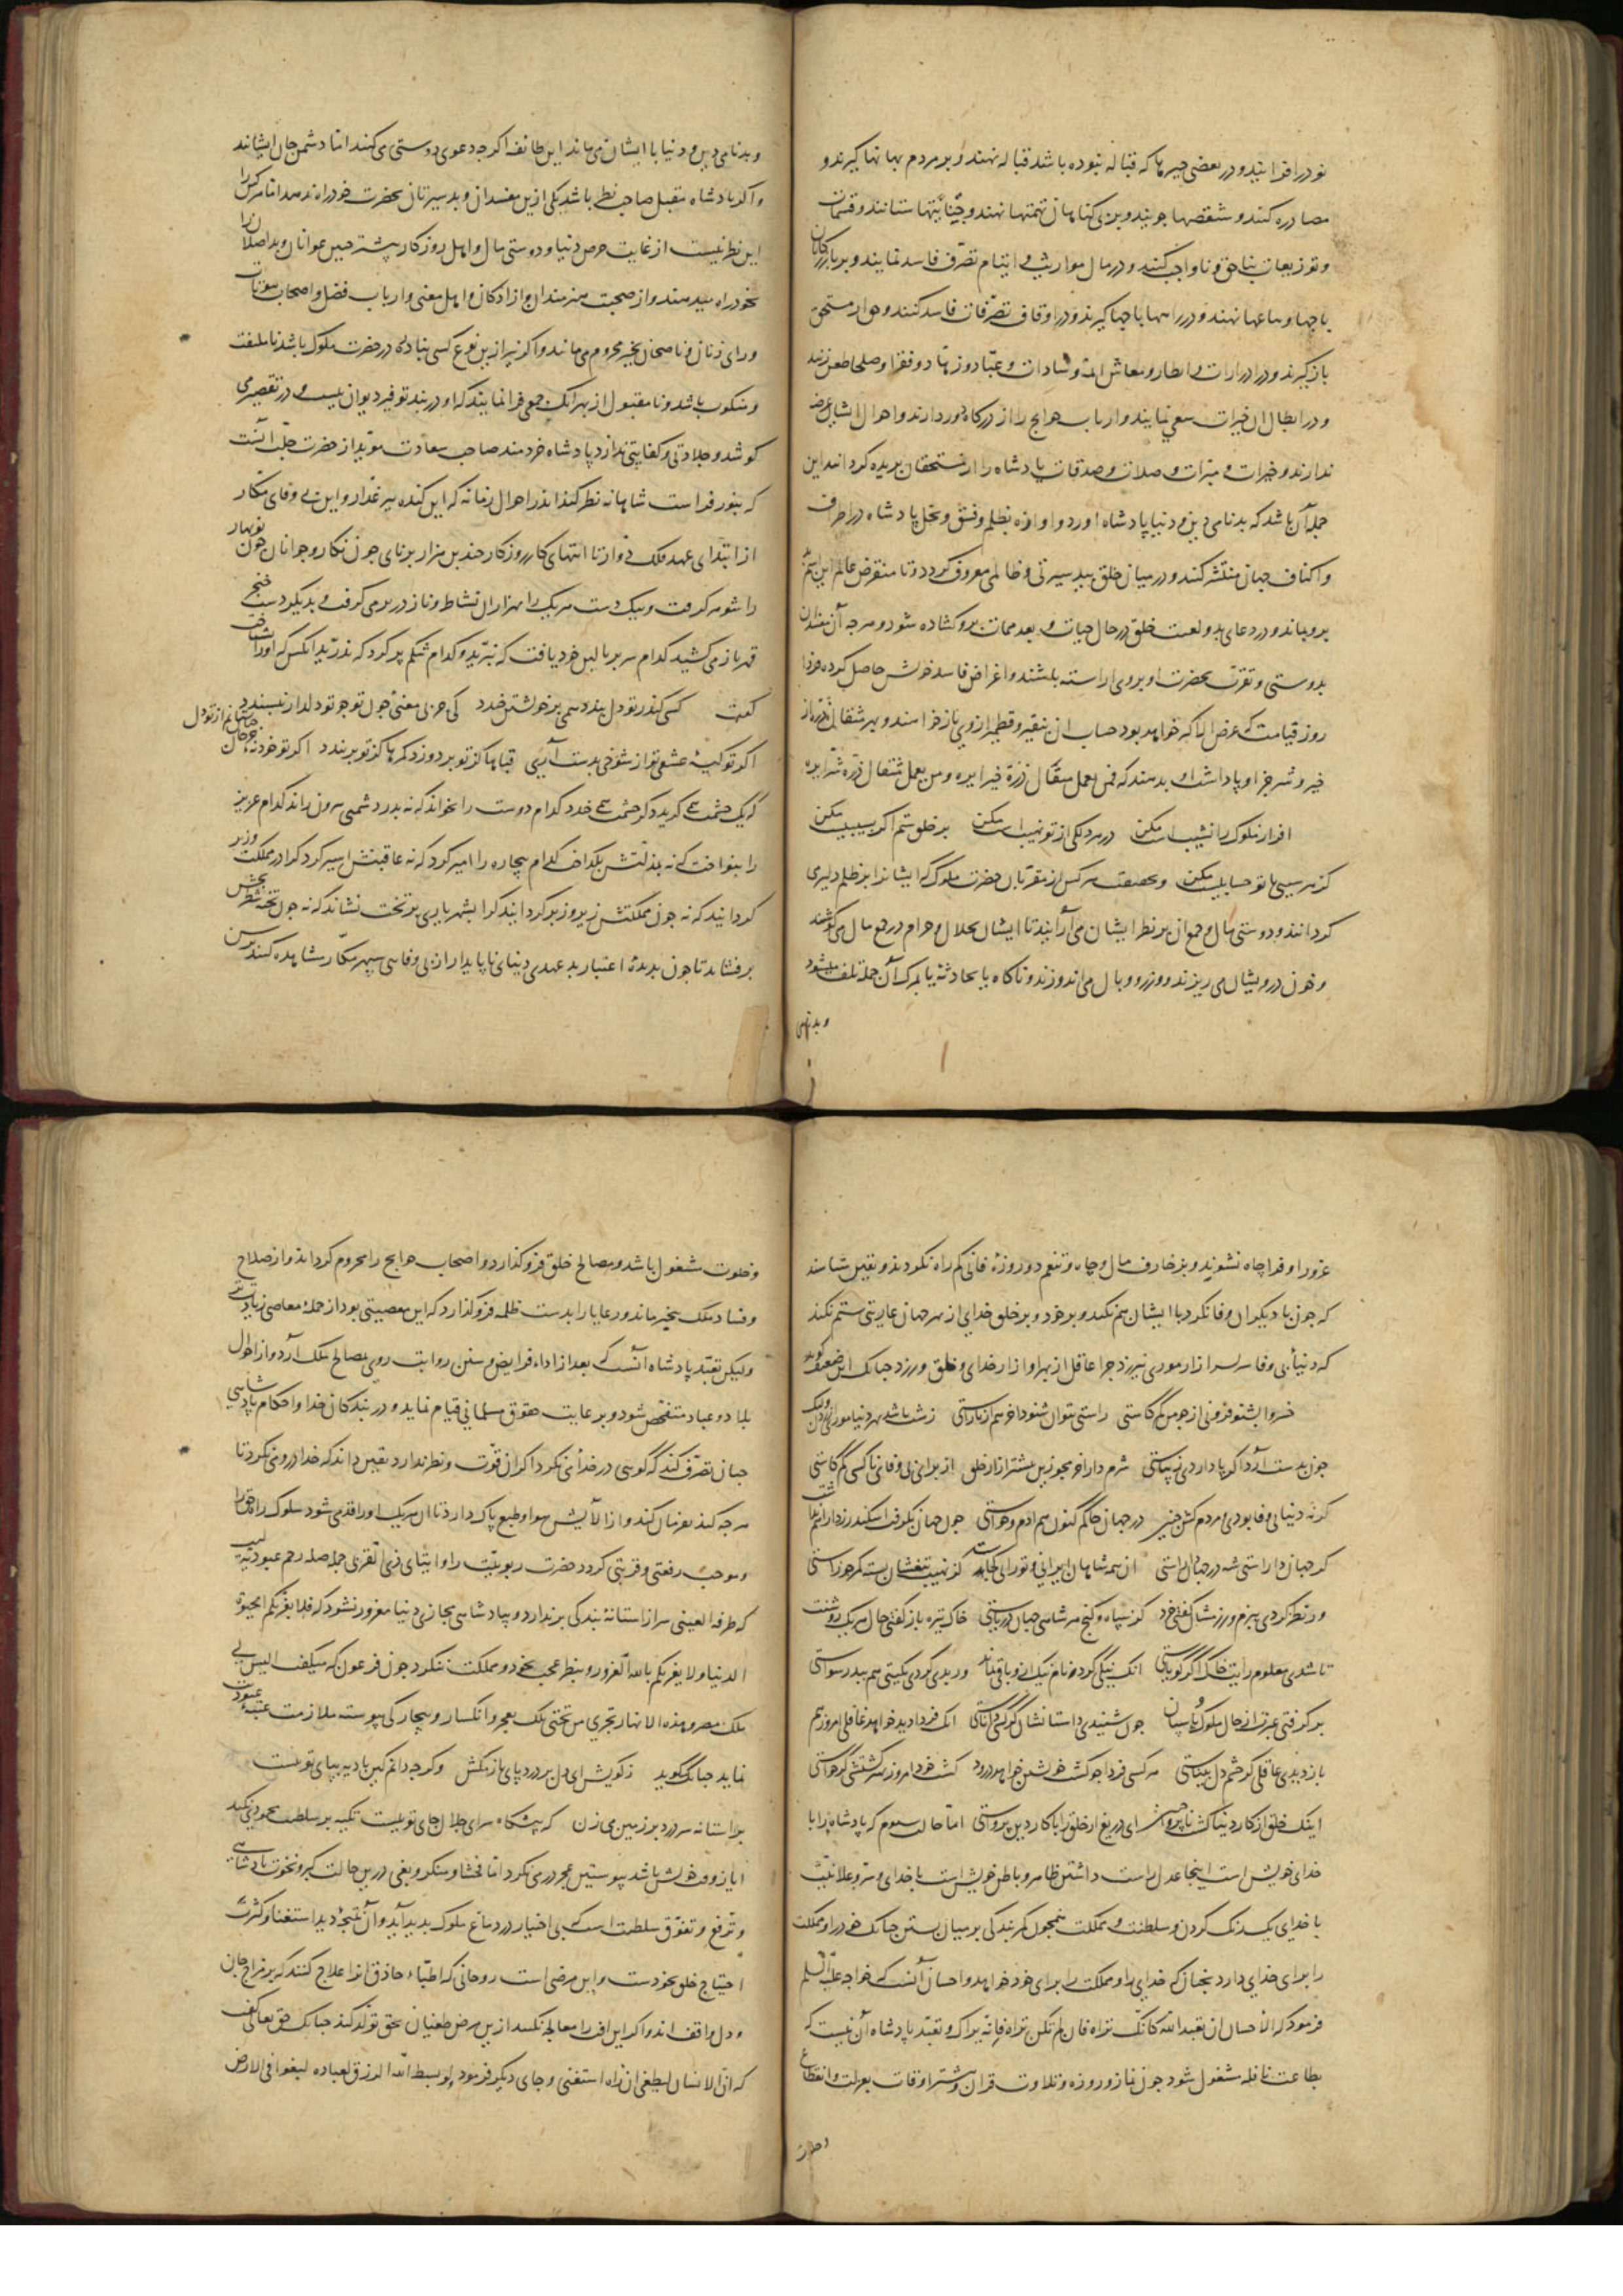 نو در افزایند و در بعضی چیزها که قباله نبوده باشد قباله نهند و بر مردم بهانها گیرند و
مصادره کنند و شقصها جویند و بر بی کناهان تهمتها نهند و جنایتها ستانند و قسمات
و توزیعات بناحق و ناواجب کنند و در مال مواریث و ایتام تصرف فاسد نمایند و بر بازرکانان
باجها و نهند و در راهها باجها گیرند و در اوقاف تصرفات فاسد کنند و حق از مستحق
باز گیرند و در ادرارات و انظار و معاش ائمه و سادات و عباد و زهاد و فقرا و صلحا طعن زنند
و در ابطال ان خیرات سعی نمایند و ارباب حوایج را از درکاه دور دارند و احوال ایشان عرضه
ندارند و خیرات و مبرات و صلات و صدقات پادشاه را از مستحقان بریده کردانند این
جمله آن باشد که بدنامی دین و دنیا پادشاه اورد و اوازه بظلم و فسق و بخل پادشاه در اطراف
و اکناف جهان منتشر کنند و در میان خلق ببدسیرتی و ظالمی معروف کردد و تا منقرض عالم این اسم
برو بماند و در دعای بد و لعنت خلق در حال حیات و بعد ممات برو کشاده شود و هرجه آن مفسدان
بدوستی و تقرب بحضرت او بروی اراسته باشند و اغراض فاسد خویش حاصل کرده فردا
روز قیامت که عرض اکبر خواهد بود حساب ان بنقیر و قطمیر از وی باز خواهند و بهر مثقالی ذره از
خیر و شر جزا و پاداش او بدهند که فمن یعمل مثقال ذرة خیرا یره و من یعمل مثقال ذرة شرا یره
افراز ملوک را نشیب است مکن در هر دلکی از تو نهیب است مکن بر خلق ستم اکر بسیبیست مکن
کز هر سیبی با تو حسابیست مکن و بحقیقت هر کس از مقربان حضرت ملوک که ایشانرا بر ظلم دلیری
کردانند و دوستی مال و جمع ان بر نظر ایشان می آرایند تا ایشان بحلال و حرام در جمع مال می کوشند
و خون درویشان می ریزند و وزر و وبال می اندوزند و ناکاه یا بحادثه یا بمرک آن جمله تلف میشود
و بدنامی
و بدنامی دین و دنیا با ایشان می ماند این طایفه اکرجه دعوی دوستی می کنند اما دشمن جان ایشانند
و اکر پادشاه مقبل صاحب نظر باشد یکی ازین مفسدان و بدسیرتان بحضرت خود راه ندهد اما هرکرا
این نظر نیست از غایت حرص دنیا و دوستی مال و اهل روزکار بیشتر جنین عوانان و بداصلان را
بخود راه میدهند و از صحبت هنرمندان و ازادکان و اهل معنی و ارباب فضل و اصحاب بیوتات
و رای زنان و ناصحان بخیر محروم می مانند و اکر نیز ازین نوع کسی بنادره در حضرت ملوک باشد نا ملتفت
و منکوب باشد و نامقبول از بهر انک جمعی فرا نمایند که او در بند توفیر دیوان نیست و در تقصیر می
کوشد و جلادتی و کفایتی ندارد پادشاه خردمند صاحب سعادت مؤید از حضرت جلت آنست
که بنور فراست شاهانه نظر کند اندر احوال زمانه که این کنده پیر غدار و این بی وفای مکار
از ابتدای عهد فلک دوار تا انتهای کار روزکار جندین هزار برنای جون نکار و جوانان جون نوبهار
را شوهر کرفت و بیک دست هر یک را بهزاران نشاط و ناز در بر می کرفت و بدیکر دست خنجر
قهر باز می کشید کدام سر بر بالین خود یافت که نبرید و کدام شکم پر کرد که ندرید انکس که اورا شناخت
کفت کسی کندر تو دل بندد همی بر خویشتن خندد کی جز بی معنئ جون تو جو تو دلدار نپسندد
اکر تو کیۀ عشقی تو از شوخی بدست آری قباها کز تو بر دوزد کمرها کز تو بربندد اکر تو خود نۀ
که یک جشمت همی کرید دکر جشمت همی خندد کدام دوست را بخواند که نه بدر دشمنی بیرون راند کدام عزیز
را بنواخت که نه بمذلتش بکداخت کدام بیچاره را امیر کرد که نه عاقبتش اسیر کرد کرا در مملکت وزیر
کردانید که نه جون مملکتش زیر و زبر کردانید کرا بشهریاری بر تخت نشاند که نه جون تخته شطرنجش
برفشاند تا جون بدیدۀ اعتبار بد عهدی دنیای ناپایدار از بی وفاسی سپهر مکار مشاهده کنند پس
غرور او فرا چاه نشوند و بزخارف مال و جاه و تنعم دو روزۀ فانی کم راه نکردند و یقین شناسند
که جون با دیکران وفا نکرد با ایشان هم نکند و بر خود و بر خلق خدای از بهر جهان عاریتی ستم نکند
که دنیا بی وفا سر بسر ازار موری نیرزد جرا عاقل از بهر او ازار خدای و خلق ورزد جنانک این ضعیف کوید
خسروا بشنو فزونی از جو من کم کاستی راستی بتوان شنود اخر هم از ناراستی
جون بدست آرد اکر پا دار دی زیباستی شرم دار اخر مجو زین بیشتر ازار خلق از برای بی وفائی ناکسی کم کاستی
کر نه دنیا بی وفا بودی و مردم کش جنین در جهان حاکم کنون هم ادم و حواستی
کر جهان را راستی شه در جهان از ان همه شاهان ایرانی و تورانی کجاست کز نهیب تیغشان بسته کمر جوزاستی
ور نظر کردی ببزم و رزمشان کفتی خرد کز سپاه و کنج هر شاهی جهان دریاستی خاک تیره باز کفتی حال هر یک روشنت
تا شدی معلوم رایت خاک اکر کویاستی انک نیکی کرد و نام نیک از وی باقی بماند ور بدی کردی بکیتی هم ببد رسواستی
بر کرفتی عبرتی از حال ملوک باستان جون شنیدی داستانشان کر کسی داناستی انک فردا دید خواهد غافلی امروز هم
باز دیدی عاقلی کر جشم دل بیناستی هر کسی فردا جو کشت خویشتن خواهد درود کشت خود امروز بهتر کشتی کر خواستی
اینک خلق از کار دنیا کشت ناپروا جنین ای دریغ ار خلق را با کار دین پرواستی اما حالت سیوم که پادشاه را با
خدای خویش است اینجا عدل راست داشتن ظاهر و باطن خویش است با خدای و سر و علانیت
با خدای یک رنک کردن و سلطنت و مملکت کمر بندکی بر میان بستن جنانک خود را و مملکت
را برای خدای دارد نجنانک خدای را و مملکت را برای خود خواهد و احسان آنست که خواجه علیه السلم
فرمود که الاحسان ان تعبد الله کانک تراه فان لم تکن تراه فانه یراک و تعبد پادشاه آن نیست که
بطاعت نافله مشغول شود جون نماز و روزه و تلاوت قران و بیشتر اوقات بعزلت و انقطاع
و خلوت
و خلوت مشغول باشد و مصالح خلق فرو کذارد و اصحاب حوایج را محروم کرداند و از صلاح
و فساد ملک بیخبر ماند و رعایا را بدست ظلمه فرو کذارد که این معصیتی بود از جملۀ معاصی زیادت
ولیکن تعبد پادشاه آنست که بعد از اداء فرایض و سنن رواتب روی بمصالح ملک آرد و از احوال
بلاد و عباد متفحص شود و برعایت حقوق مسلمانی قیام نماید و در بندکان خدا و احکام پادشاهی
جنان تصرف کند که کوسی در خدا می نکرد اکر ان قوت و نظر ندارد یقین داند که خدا در وی می نکرد تا
هر جه کند بفرمان کند و از الایش هوا و طبع پاک دارد تا ان هر یک اورا قدمی شود سلوک راه حق را
و موجب رفعتی و قربتی کردد حضرت ربوبیت را و ایتای ذی القربی جمله صله رحم عبودیت
که طرفه العینی سر از استانه بندکی بر ندارد و بپادشاهی مجازی دنیا مغرور نشود که فلا یغرنکم الحیوة
الدنیا و لا یغرنکم بالله الغرور و بنظر عجب بخود و مملکت ننکرد جون فرعون که میکفت الیس لی
ملک مصر و هذه الانهار تجری من تحتی بلک بعجز و انکسار و بیچارکی پیوسته ملازمت عتبۀ عبودیت
نماید جنانک کوید ز کویش ای دل پر درد پای باز مکش وکرجه دانم کین بادیه بپای تو نیست
بر استانه سر درد بر زمین می زن که پیشکاه سرای جلال جای تو نیست تکیه بر سلطنت محمودی نکند
ایاز وقت خویش باشد پوستین عجز در می نکرد اما فحشا و منکر و بغی درین حالت کبر و نخوت پادشاهی
و ترفع و تفوق سلطنت است که بی اختیار در دماغ ملوک پدید آید و آن نتیجۀ دید استغنا و کثرت
احتیاج خلق بخودست و این مرضی است روحانی که اطباء حاذق انرا علاج کنند که بر مزاج جان
و دل واقف اند و اکر این افت را معالجه نکنند ازین مرض طغیان بحق تولد کند جنانک حق تعالی کفت
که ان الانسان لیطغی ان راه استغنی و جای دیکر فرمود و لو بسط الله الرزق لعباده لبغوا فی الارض